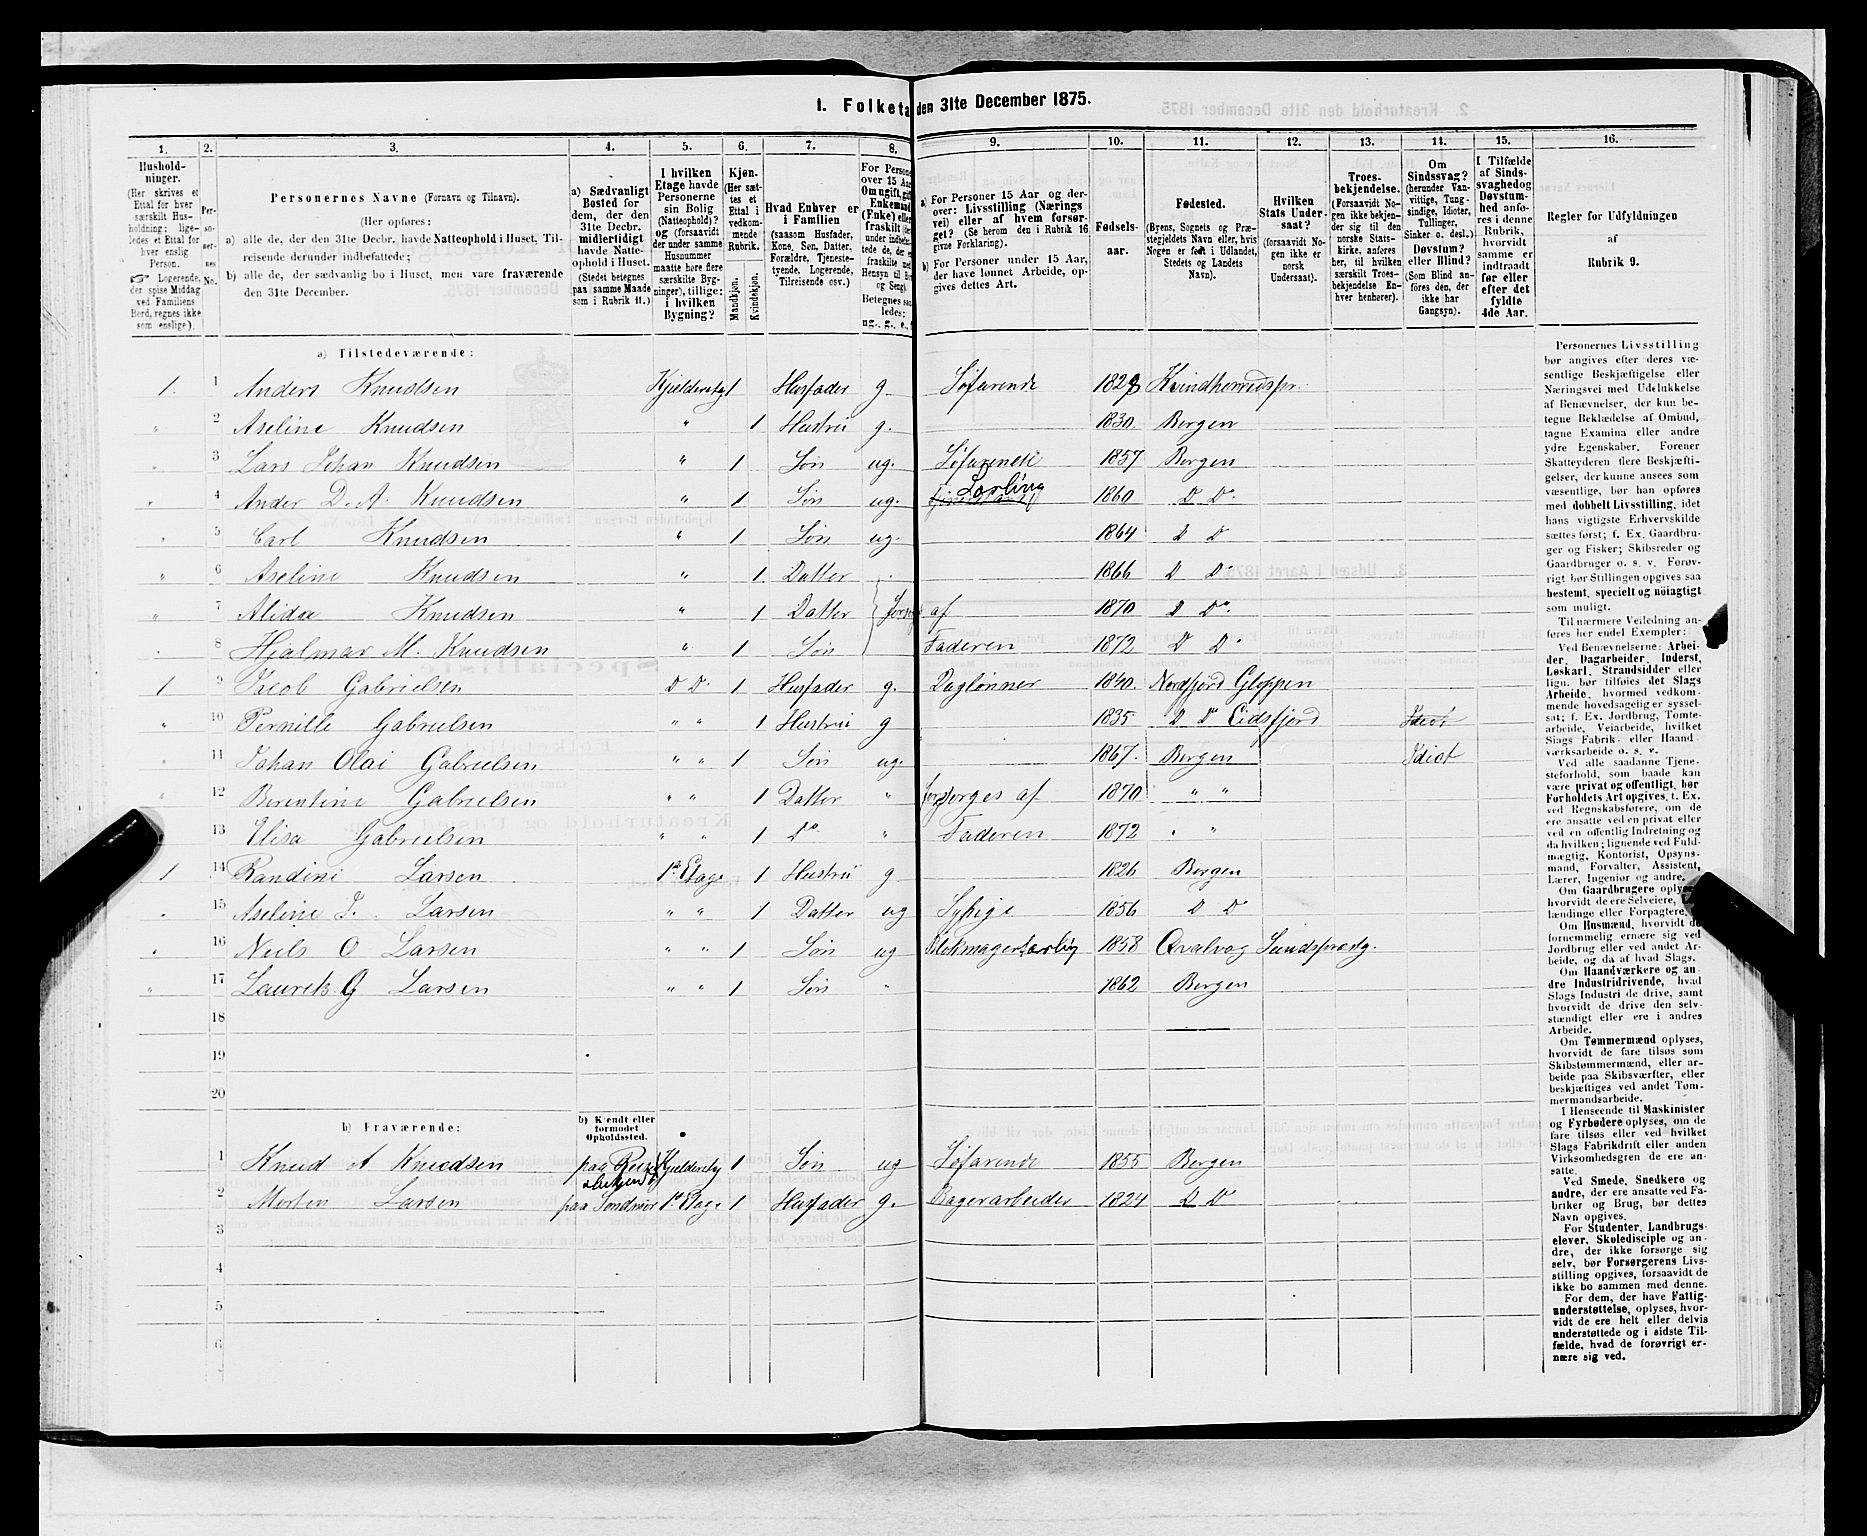 1. Folketa den 31te December 1875.
1. 2. 3. 4. 5. 6. 7. 8. 9. 10. 11. 12. 13. 14. 15. 16.
Hushold-
ninger.
(Her skrives et
Ettal for hver
særskilt Hus-
holdning; lige-
ledes et Ettal for
hver enslig
Person.
Logerende,
der spise Middag
ved Familiens
Berd, regnes ikke
som enslige).
Personernes Navne (Fornavn og Tilnavn).
(Her opføres:
a) alle de, der den 31te Decbr. havde Natteophold i Huset, Til-
reisende derunder indbefattede;
b) alle de, der sædvanlig bo i Huset, men vare fraværende
den 31te December.
a) Sædvanligt
Bosted for
dem, der den
31te Decbr.
midlertidigt
havde Natte-
ophold i Huset.
(Stedet betegnes
paa samme Maade
som i Rubrik 11.)
I hvilken
Etage havde
Personerne
sin Bolig
(Natteophold)?
og (forsaavidt
der under samme
Husnummer
maatte høre flere
særskilte Byg-
ninger), tillige:
i hvilken
Bygning?
Kjøn.
(Her sæt-
tes et
Ettal i
vedkom-
mende
Rubrik.
Mandkjøn.
Kvindekjøn.
Hvad Enhver er
i Familien
(saasom Husfader,
Kone, Søn, Datter,
Forældre, Tjeneste-
tyende, Logerende,
Tilreisende osv.)
For Persone
over 15 Aar
Om ugift, gift
Enkemand
(Enke) eller
fraskilt
Betegnes saa
ledes:
ug., g., e.,
a) For Personer 15 Aar og der-
over: Livsstilling (Nærings
vei) eller af hvem forsør-
get? (Se herom den i Rubrik 16
givne Forklaring).
b) For Personer under 15 Aar,
der have lønnet Arbeide, op-
gives dettes Art.
Fødsels-
aar.
Fødested.
(Byens, Sognets og Præ-
stegjeldets Navn eller, hvis
Nogen er født i Udlandet,
Stedets og Landets
Navn).
Hvilken
Stats Under-
saat?
(forsaavidt No-
gen ikke er
norsk
Undersaat).
Troes-
bekjendelse.
(Forsaavidt No-
gen ikke bekjen-
der sig til den
norske Stats-
kirke, anføres
her, til hvilken
særskilt Troes-
bekjendelse En-
hver henhører).
Om
Sindssvag?
(herunder Van-
vittige, Tung-
sindige, Idioter,
Tullinger,
Sinker o. desl.)
Døvstum?
eller Blind?
(Som Blind an-
føres den, der
ikke har
Gangsyn).
I Tilfælde
af Sinds-
svaghed og
Døvstum-
hed anfø-
res i denne
Rubrik,
hvorvidt
samme er
indtraadt
før eller
efter det
fyldte
4de Aar.
Regler for Udfyldningen
af
Rubrik 9.
a) Tilstedeværende:
1. 1 Anders Knudsen Kjelderetag 1 Husfader g. Søfarende 1828 Kvindherredspr.
" 2 Aseline Knudsen " 1 Hustru g. 1830. Bergen
" 3 Lars Johan Knudsen " 1 Søn ug. Søfarende 1857 Bergen
" 4 Ander D. A. Knudsen " 1 Søn ug. Lærling 1860 D Do
" 5 Carl Knudsen " 1 Søn ug. 1864 D Do
" 6 Aseline Knudsen " 1 Datter 1866 D Do
" 7 Alida Knudsen " 1 Datter forsørges af 1870 D Do.
" 8 Hjalmar M. Knudsen " 1 Søn Faderen 1872 D Do
1 9 Jacob Gabrielsen D Do 1 Husfader g. Daglønner 1840. Nordfjord Gloppen
" 10 Pernille Gabrielsen " " 1 Hustru g 1835 D Do Eidsfjord Idiot
" 11 Johan Olai Gabrielsen " " 1 Søn ug. 1867. Bergen Idiot
" 12 Berentine Gabrielsen " " 1 Datter " forsørges af 1870 " "
13 Elisa Gabrielsen " " 1 Do " Faderen 1872 " "
1 14 Randini Larsen 1ste Etage 1 Hustru g 1826 Bergen
" 15 Aseline J. Larsen " " 1 Datter ug Sypige 1856 D Do
" 16 Niels O Larsen " " 1 Søn ug Blokmagerlærling 1858 Qvalvog Sundspræstg.
" 17 Laurits G Larsen " " 1 Søn " 1862 Bergen
18
19
20
b) Fraværende:
b) Kjendt eller
formodet
Opholdssted.
1 Knud A Knudsen paa Reise Kjelderetag 1 Søn ug Søfarende 1855 Bergen
2 Morten Larsen paa Søndmør 1ste Etage 1 Husfader g. Bagerarbeider 1824 D Do
3
4
5
6
Personernes Livsstilling
bør angives efter deres væ-
sentlige Beskjæftigelse eller
Næringsvei med Udelukkelse
af Benævnelser, der kun be-
tegne Beklædelse af Ombud,
tagne Examina eller andre
ydre Egenskaber. Forener
Skatteyderen flere Beskjæfti-
gelser, der kunne ansees som
væsentlige, bør han opføres
med dobbelt Livsstilling, idet
hans vigtigste Erhvervskilde
sættes først; f. Ex. Gaardbru-
ger og Fisker; Skibsreder og
Gaardbruger o. s. v. Forøv-
rigt bør Stillingen opgives saa
bestemt, specielt og nöiagtigt
som muligt.
Til nærmere Veiledning an-
føres her endel Exempler:
Ved Benævnelserne: Arbei-
der, Dagarbeider, Inderst,
Løskarl, Strandsidder eller
lign. bør tilføies det Slags
Arbeide, hvormed vedkom-
mende hovedsagelig er syssel-
sat; f. Ex. Jordbrug, Tomte-
arbeide, Veiarbeide, hvilket
Slags Fabrik- eller Haand-
værksarbeide o. s. v.
Ved alle saadanne Tjene-
steforhold, som baade kan
være privat og offentligt, bør
Forholdets Art opgives, f. Ex.
ved Regnskabsførere, om de
ere ansatte ved en privat eller
ved en offentlig Indretning og
da hvilken; lignende ved Fuld-
mægtig, Kontorist, Opsyns-
mand, Forvalter, Assistent,
Lærer, Ingeniør og andre.
Om Gaardbrugere oplyses,
hvorvidt de ere Selveiere,
lændinge eller Forpagtere.
Om Husmænd, hvorvidt de
fornemmelig ernære sig ved
Jordbrug eller ved andet Ar-
beide, og da af hvad Slags.
Om Haandværkere og an-
dre Industridrivende, hvad
Slags Industri de drive, samt
hvorvidt de drive den selv-
stændigt eller ere i andres
Arbeide.
Om Tømmermænd oplyses,
hvorvidt de fare tilsøs som
Skibstømmermænd, eller ar-
beide paa Skibsværfter, eller
beskjæftiges ved andet Tøm-
mermandsarbeide.
I Henseende til Maskinister
og Fyrbødere oplyses, om de
fare tilsøs eller ved hvilket
Slags Fabrikdrift eller anden
Virksomhedsgren de ere an-
satte.
Ved Smede, Snedkere og
andre, der ere ansatte ved Fa-
briker og Brug, bør dettes
Navn opgives.
For Studenter, Landbrugs-
elever, Skoledisciple og an-
dre, der ikke forsørge sig
selv, bør Forsørgerens Livs-
stilling opgives, forsaavidt de
ikke bo sammen med denne.
For dem, der have Fattig-
understøttelse, oplyses, hvor-
vidt de ere helt eller delvis
understøttede og i sidste Til-
fælde, hvad de forøvrigt er-
nære sig ved.